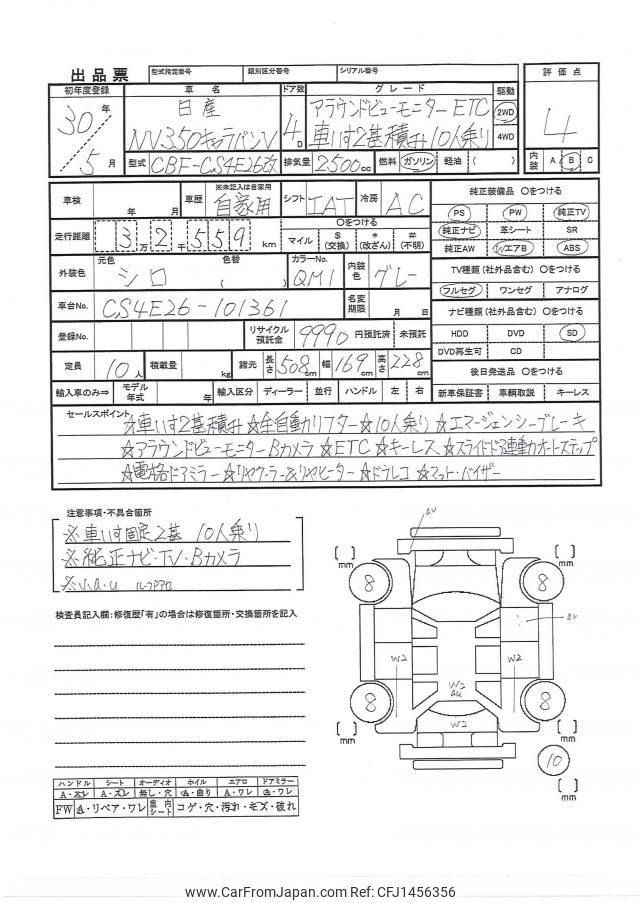 出品票 型式指定番号 類別区分番号 シリアル番号
初年度登録 車名 ドア数 グレード 駆動 評価点
30年 日産 アラウンドビューモニター ETC 2WD
5月 NV350キャラバンV 4D 車いす2基積み 10人乗り 4WD 4
型式 CBF-CS4E26改 排気量 2500cc 燃料 ガソリン 軽油 ( ) 内装 A B C
車検 年 月 車歴 ※未記入は自家用 自家用 シフト IAT 冷房 AC
走行距離 3万2千559km マイル 〇をつける $(交換) *(改ざん) #(不明)
外装色 元色 シロ 色替 ( カラーNo. QM1 内装色 グレー
車台No. CS4E26-101361 名変期限 月 日
登録No. リサイクル預託金 9990 円預託済 未預託
定員 10人 積載量 kg 諸元 長さ 508cm 幅 169cm 高さ 228cm
輸入車のみ⇒ モデル年式 年 輸入区分 ディーラー 並行 ハンドル 左 右
純正装備品 〇をつける
PS PW 純正TV
純正ナビ 革シート SR
純正AW WエアB ABS
TV種類(社外品含む) 〇をつける
フルセグ ワンセグ アナログ
ナビ種類(社外品含む) 〇をつける
HDD DVD SD
DVD再生可 CD
後日発送品 〇をつける
新車保証書 車輌取説 キーレス
セールスポイント
☆車いす2基積み ☆全自動リフター ☆10人乗り ☆エマージェンシーブレーキ
☆アラウンドビューモニターBカメラ ☆ETC ☆キーレス ☆スライドドア連動オートステップ
☆電格ドアミラー ☆リヤクーラー&リヤヒーター ☆ドラレコ ☆マット・バイザー
注意事項・不具合箇所
※車いす固定2基 10人乗り
※純正ナビ・TV・Bカメラ
※小a・u
検査員記入欄:修復歴「有」の場合は修復箇所・交換箇所を記入
au
[ ] mm [ ] mm
8 8
au
W2 W2
W2
au
8 8
W2
[ ] mm [ ] mm
10
[ ] mm
ハンドル シート オーディオ ホイル エアロ ドアミラー
A・スレ A・スレ 無し・穴 A・曲り A・ワレ A・ワレ
FW A・リペア・ワレ 室内シート コゲ・穴・汚れ・キズ・破れ
www.CarFromJapan.com Ref: CFJ1456356